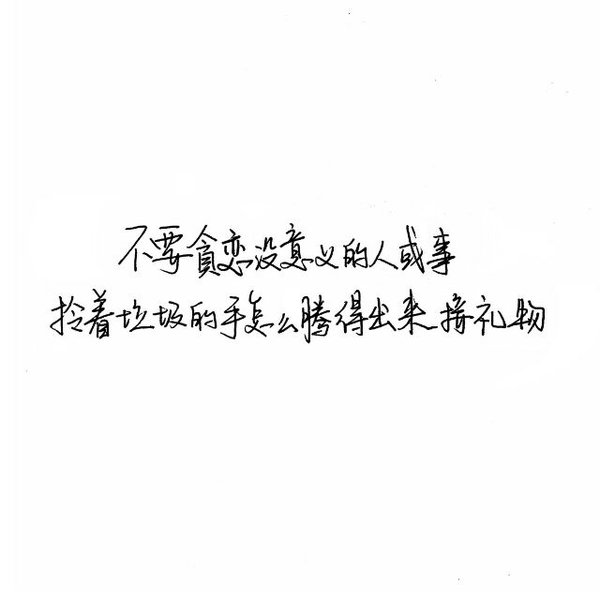 不要貪恋没意义的人或事
拎着垃圾的手怎么腾得出来接礼物